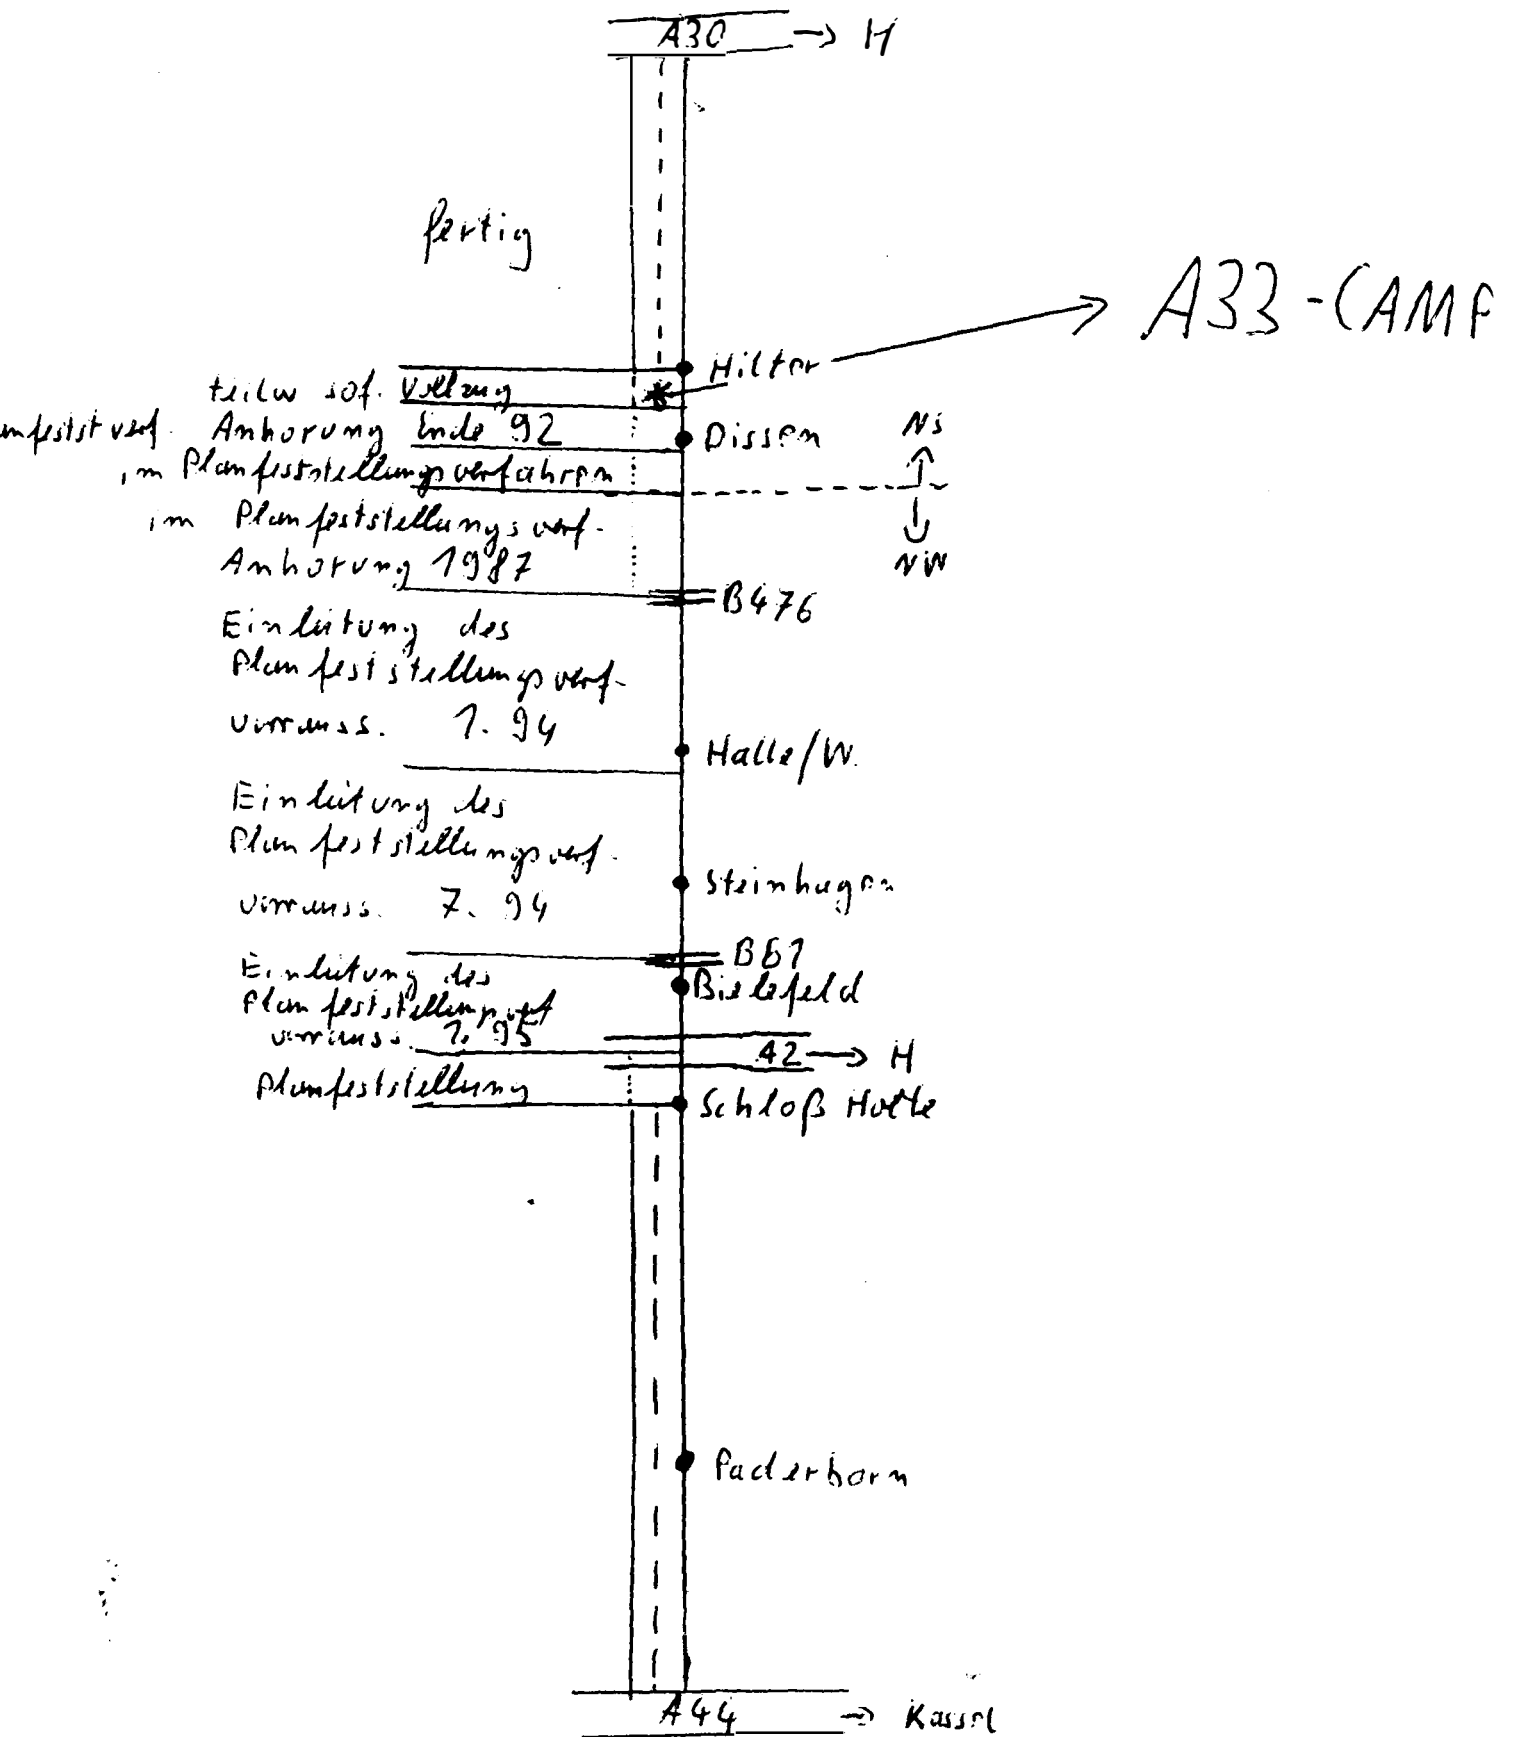 A30 → H
fertig
→ A33-CAMP
Hilter
teilw sof. Vollzug
Anhörung Ende 92
Dissen
NS
im Planfeststellungsverfahren
im Planfeststellungsverf.
NW
Anhörung 1987
B476
Einleitung des
Planfeststellungsverf.
vorrauss. 1.94
Halle/W.
Einleitung des
Planfeststellungsverf.
vorrauss. 7.94
Steinhagen
B61
Einleitung des
Bielefeld
Planfeststellungsverf
vorrauss. 1.95
A2 → H
Planfeststellung
Schloß Holte
Paderborn
A44 → Kassel